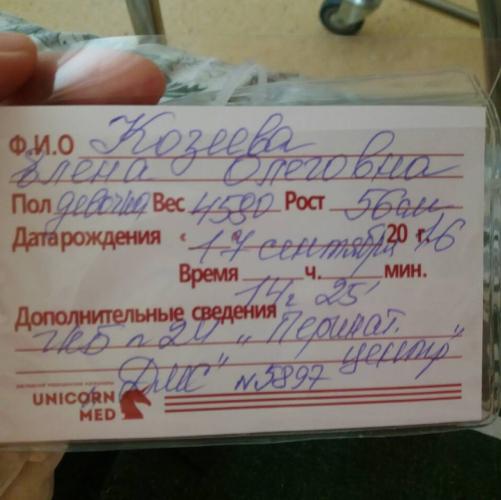 Ф.И.О Козеева
Елена Олеговна
Пол девочка Вес 4590 Рост 56см
Дата рождения "17" сентября 2016 г.
Время 14 ч. 25 мин.
Дополнительные сведения
ГКБ n 24 „Перинат.
центр"
„ДМС" N5897
UNICORN
MED